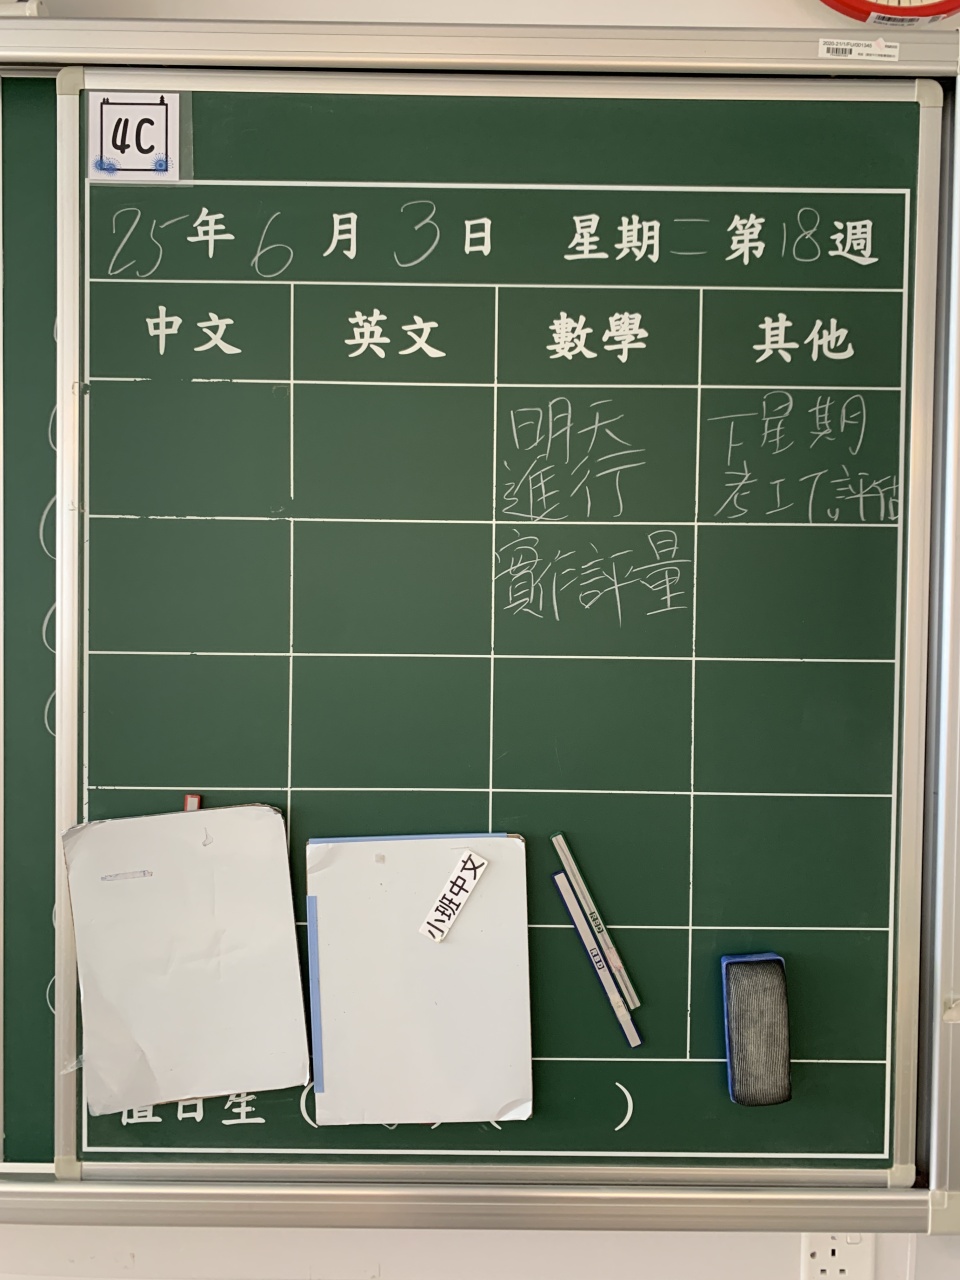 4C
25年6月3日 星期二第18週
中文 英文 數學 其他
明天
進行
實作評量
下星期
考工T評估
小班中文
值日生 ( ) ( )